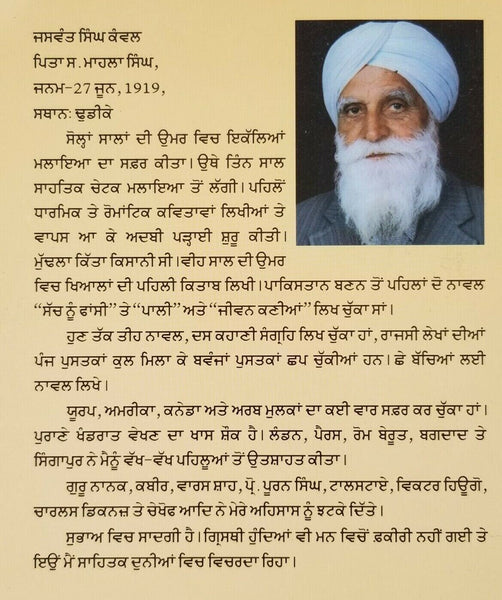 ਜਸਵੰਤ ਸਿੰਘ ਕੰਵਲ
ਪਿਤਾ ਸ. ਮਾਹਲਾ ਸਿੰਘ,
ਜਨਮ–27 ਜੂਨ, 1919,
ਸਥਾਨ: ਢੁਡੀਕੇ
ਸੋਲ੍ਹਾਂ ਸਾਲਾਂ ਦੀ ਉਮਰ ਵਿਚ ਇਕੱਲਿਆਂ
ਮਲਾਇਆ ਦਾ ਸਫ਼ਰ ਕੀਤਾ। ਉਥੇ ਤਿੰਨ ਸਾਲ
ਸਾਹਤਿਕ ਚੇਟਕ ਮਲਾਇਆ ਤੋਂ ਲੱਗੀ। ਪਹਿਲੋਂ
ਧਾਰਮਿਕ ਤੇ ਰੋਮਾਂਟਿਕ ਕਵਿਤਾਵਾਂ ਲਿਖੀਆਂ ਤੇ
ਵਾਪਸ ਆ ਕੇ ਅਦਬੀ ਪੜ੍ਹਾਈ ਸ਼ੁਰੂ ਕੀਤੀ।
ਮੁੱਢਲਾ ਕਿੱਤਾ ਕਿਸਾਨੀ ਸੀ। ਵੀਹ ਸਾਲ ਦੀ ਉਮਰ
ਵਿਚ ਖਿਆਲਾਂ ਦੀ ਪਹਿਲੀ ਕਿਤਾਬ ਲਿਖੀ। ਪਾਕਿਸਤਾਨ ਬਣਨ ਤੋਂ ਪਹਿਲਾਂ ਦੋ ਨਾਵਲ
“ਸੱਚ ਨੂੰ ਫਾਂਸੀ” ਤੇ “ਪਾਲੀ” ਅਤੇ “ਜੀਵਨ ਕਣੀਆਂ” ਲਿਖ ਚੁੱਕਾ ਸਾਂ।
ਹੁਣ ਤੱਕ ਤੀਹ ਨਾਵਲ, ਦਸ ਕਹਾਣੀ ਸੰਗ੍ਰਹਿ ਲਿਖ ਚੁੱਕਾ ਹਾਂ, ਰਾਜਸੀ ਲੇਖਾਂ ਦੀਆਂ
ਪੰਜ ਪੁਸਤਕਾਂ ਕੁਲ ਮਿਲਾ ਕੇ ਬਵੰਜਾਂ ਪੁਸਤਕਾਂ ਛਪ ਚੁੱਕੀਆਂ ਹਨ। ਛੇ ਬੱਚਿਆਂ ਲਈ
ਨਾਵਲ ਲਿਖੇ।
ਯੂਰਪ, ਅਮਰੀਕਾ, ਕਨੇਡਾ ਅਤੇ ਅਰਬ ਮੁਲਕਾਂ ਦਾ ਕਈ ਵਾਰ ਸਫ਼ਰ ਕਰ ਚੁੱਕਾ ਹਾਂ।
ਪੁਰਾਣੇ ਖੰਡਰਾਤ ਵੇਖਣ ਦਾ ਖਾਸ ਸ਼ੌਕ ਹੈ। ਲੰਡਨ, ਪੈਰਸ, ਰੋਮ ਬੇਰੂਤ, ਬਗਦਾਦ ਤੇ
ਸਿੰਗਾਪੁਰ ਨੇ ਮੈਨੂੰ ਵੱਖ–ਵੱਖ ਪਹਿਲੂਆਂ ਤੋਂ ਉਤਸ਼ਾਹਤ ਕੀਤਾ।
ਗੁਰੂ ਨਾਨਕ, ਕਬੀਰ, ਵਾਰਸ ਸ਼ਾਹ, ਪ੍ਰੋ. ਪੂਰਨ ਸਿੰਘ, ਟਾਲਸਟਾਏ, ਵਿਕਟਰ ਹਿਊਗੋ,
ਚਾਰਲਸ ਡਿਕਨਜ਼ ਤੇ ਚੇਖੋਫ ਆਦਿ ਨੇ ਮੇਰੇ ਅਹਿਸਾਸ ਨੂੰ ਝਟਕੇ ਦਿੱਤੇ।
ਸੁਭਾਅ ਵਿਚ ਸਾਦਗੀ ਹੈ। ਗ੍ਰਿਸਥੀ ਹੁੰਦਿਆਂ ਵੀ ਮਨ ਵਿਚੋਂ ਫ਼ਕੀਰੀ ਨਹੀਂ ਗਈ ਤੇ
ਇਉਂ ਮੈਂ ਸਾਹਿਤਕ ਦੁਨੀਆਂ ਵਿਚ ਵਿਚਰਦਾ ਰਿਹਾ।